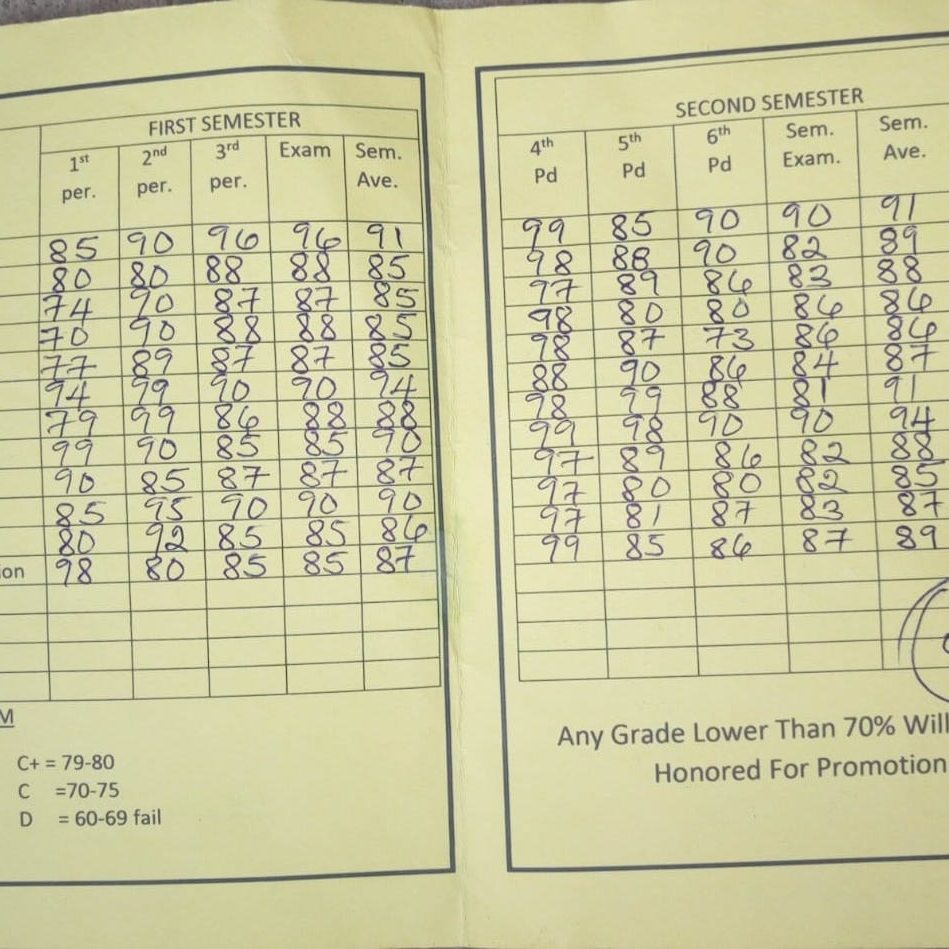 FIRST SEMESTER
1st per. 2nd per. 3rd per. Exam Sem. Ave.
85 90 96 96 91
80 80 88 88 85
74 90 87 87 85
70 90 88 88 85
77 89 87 87 85
94 99 90 90 94
79 99 86 88 88
99 90 85 85 90
90 85 87 87 87
85 95 90 90 90
80 92 85 85 86
ion 98 80 85 85 87
M
C+ = 79-80
C =70-75
D = 60-69 fail
SECOND SEMESTER
4th Pd 5th Pd 6th Pd Sem. Exam. Sem. Ave.
99 85 90 90 91
98 88 90 82 89
97 89 86 83 88
98 80 80 86 86
98 87 73 86 86
88 90 86 84 87
98 99 88 81 91
99 98 90 90 94
97 89 86 82 88
97 80 80 82 85
97 81 87 83 87
99 85 86 87 89
Any Grade Lower Than 70% Will
Honored For Promotion